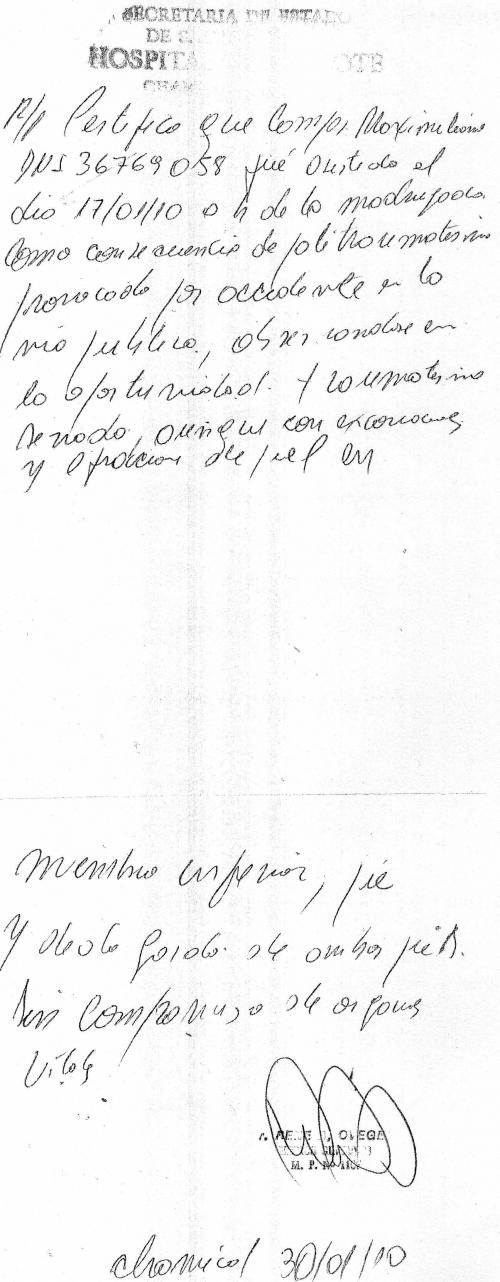 SECRETARIA DE ESTADO
DE
HOSPITAL
R/p Certifico que Maximiliano
DNI 36769058 fué asistido el
dia 17/01/10 a h de la madrugada
Como consecuencia de politraumatismo
provocado por accidente en la
via publica, observandose en
la oportunidad traumatismo
aunque con excoriaciones
y de piel en
miembro inferior, pie
y dedo gordo de ambos pies.
Sin compromiso de organos
vitales
M. P. Nº
Chamical 30/01/10